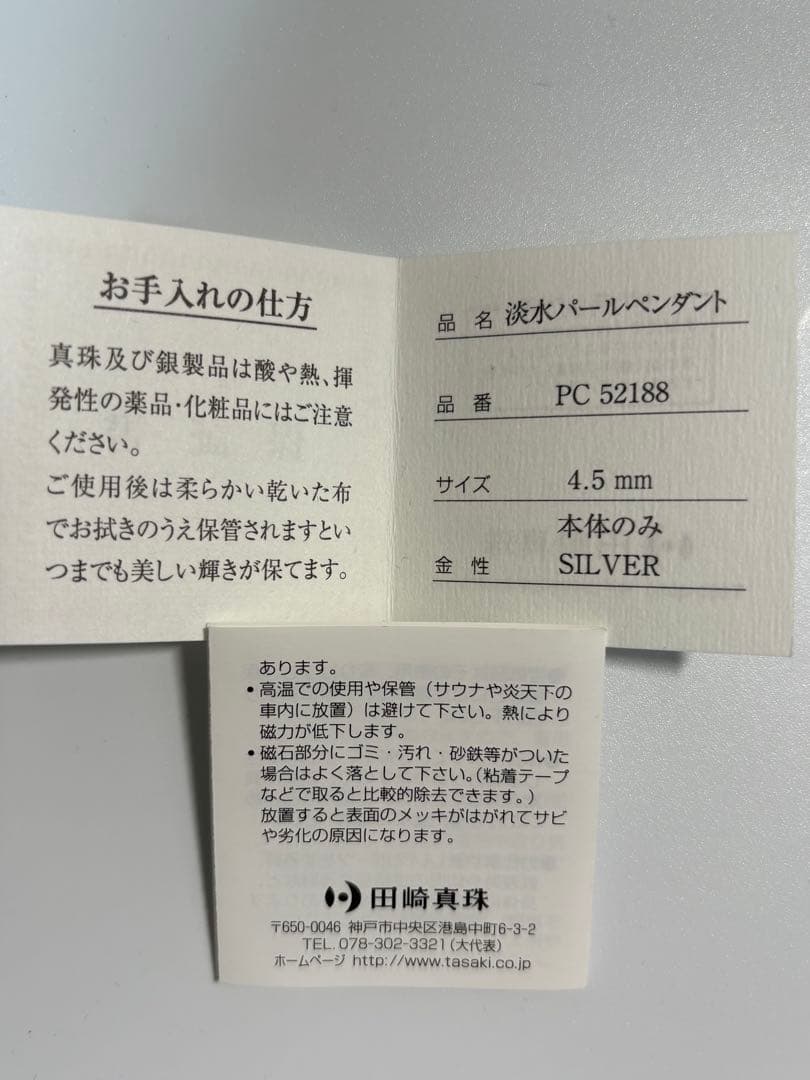 お手入れの仕方
真珠及び銀製品は酸や熱、揮
発性の薬品・化粧品にはご注意
ください。
ご使用後は柔らかい乾いた布
でお拭きのうえ保管されますとい
つまでも美しい輝きが保てます。
品 名 淡水パールペンダント
品 番 PC 52188
サイズ 4.5 mm
本体のみ
金 性 SILVER
あります。
• 高温での使用や保管（サウナや炎天下の
車内に放置）は避けて下さい。熱により
磁力が低下します。
• 磁石部分にゴミ・汚れ・砂鉄等がついた
場合はよく落として下さい。（粘着テープ
などで取ると比較的除去できます。）
放置すると表面のメッキがはがれてサビ
や劣化の原因になります。
田崎真珠
〒650-0046 神戸市中央区港島中町6-3-2
TEL. 078-302-3321（大代表）
ホームページ http://www.tasaki.co.jp